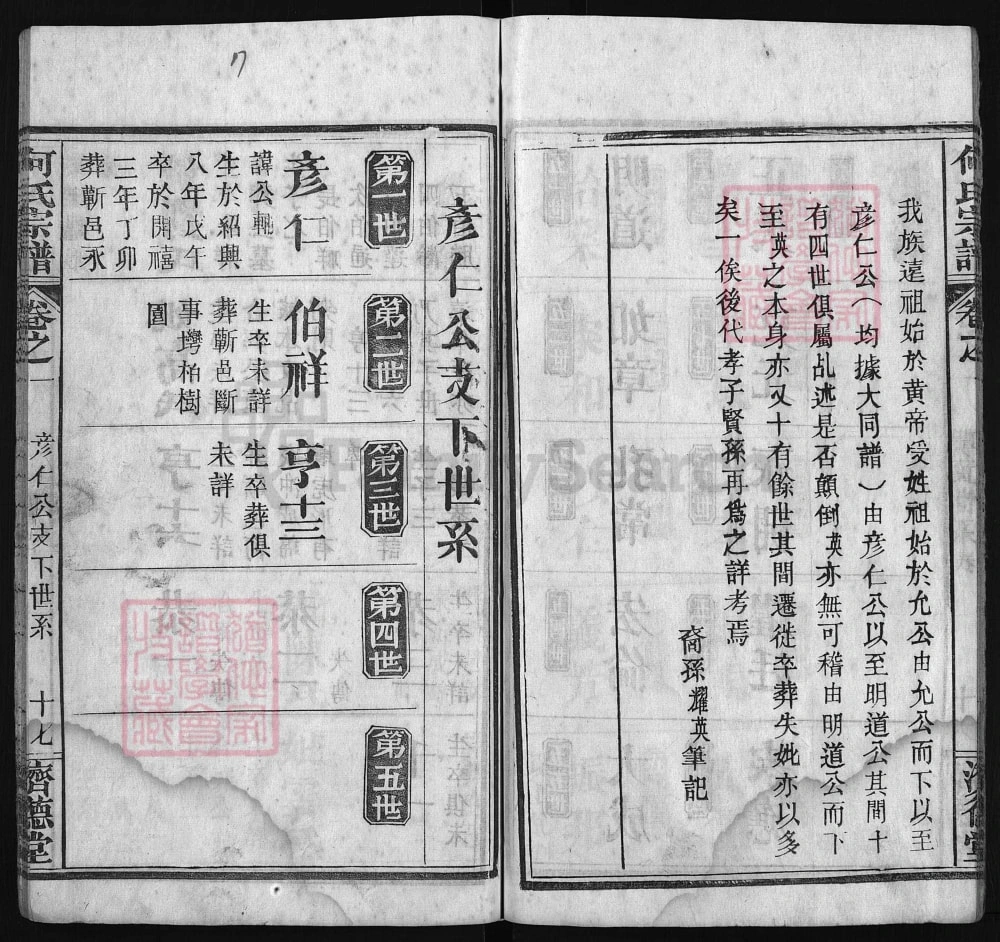 何氏宗譜
卷之
我族遠祖始於黄帝受姓祖始於允公由允公而下以至
彦仁公(均據大同譜)由彦仁公以至明道公其間十
有四世俱屬乩述是否顛倒英亦無可稽由明道公而下
至英之本身亦又十有餘世其間遷徙卒葬失妣亦以多
矣一俟後代孝子賢孫再為之詳考焉
裔孫耀英筆記
彦仁公支下世系
第一世
第二世
第三世
第四世
第五世
彦仁
諱公輒
生於紹興
八年戊午
卒於開禧
三年丁卯
葬蘄邑永
伯祥
生卒未詳
葬蘄邑斷
事塆柏樹
圓
亨十三
生卒葬俱
未詳
何氏宗譜
卷之一
彦仁公支下世系
十七
濟德堂
7
FamilySearch